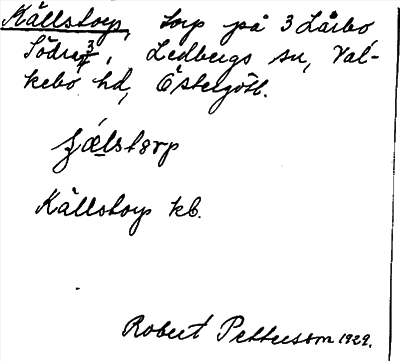 Källstorp, torp på 3 Lårbo
Södra 3/4, Ledbergs sn, Val-
kebo hd, Östergötl.
ʃǽlstɔrp
Källstorp kb.
Robert Pettersson 1929.